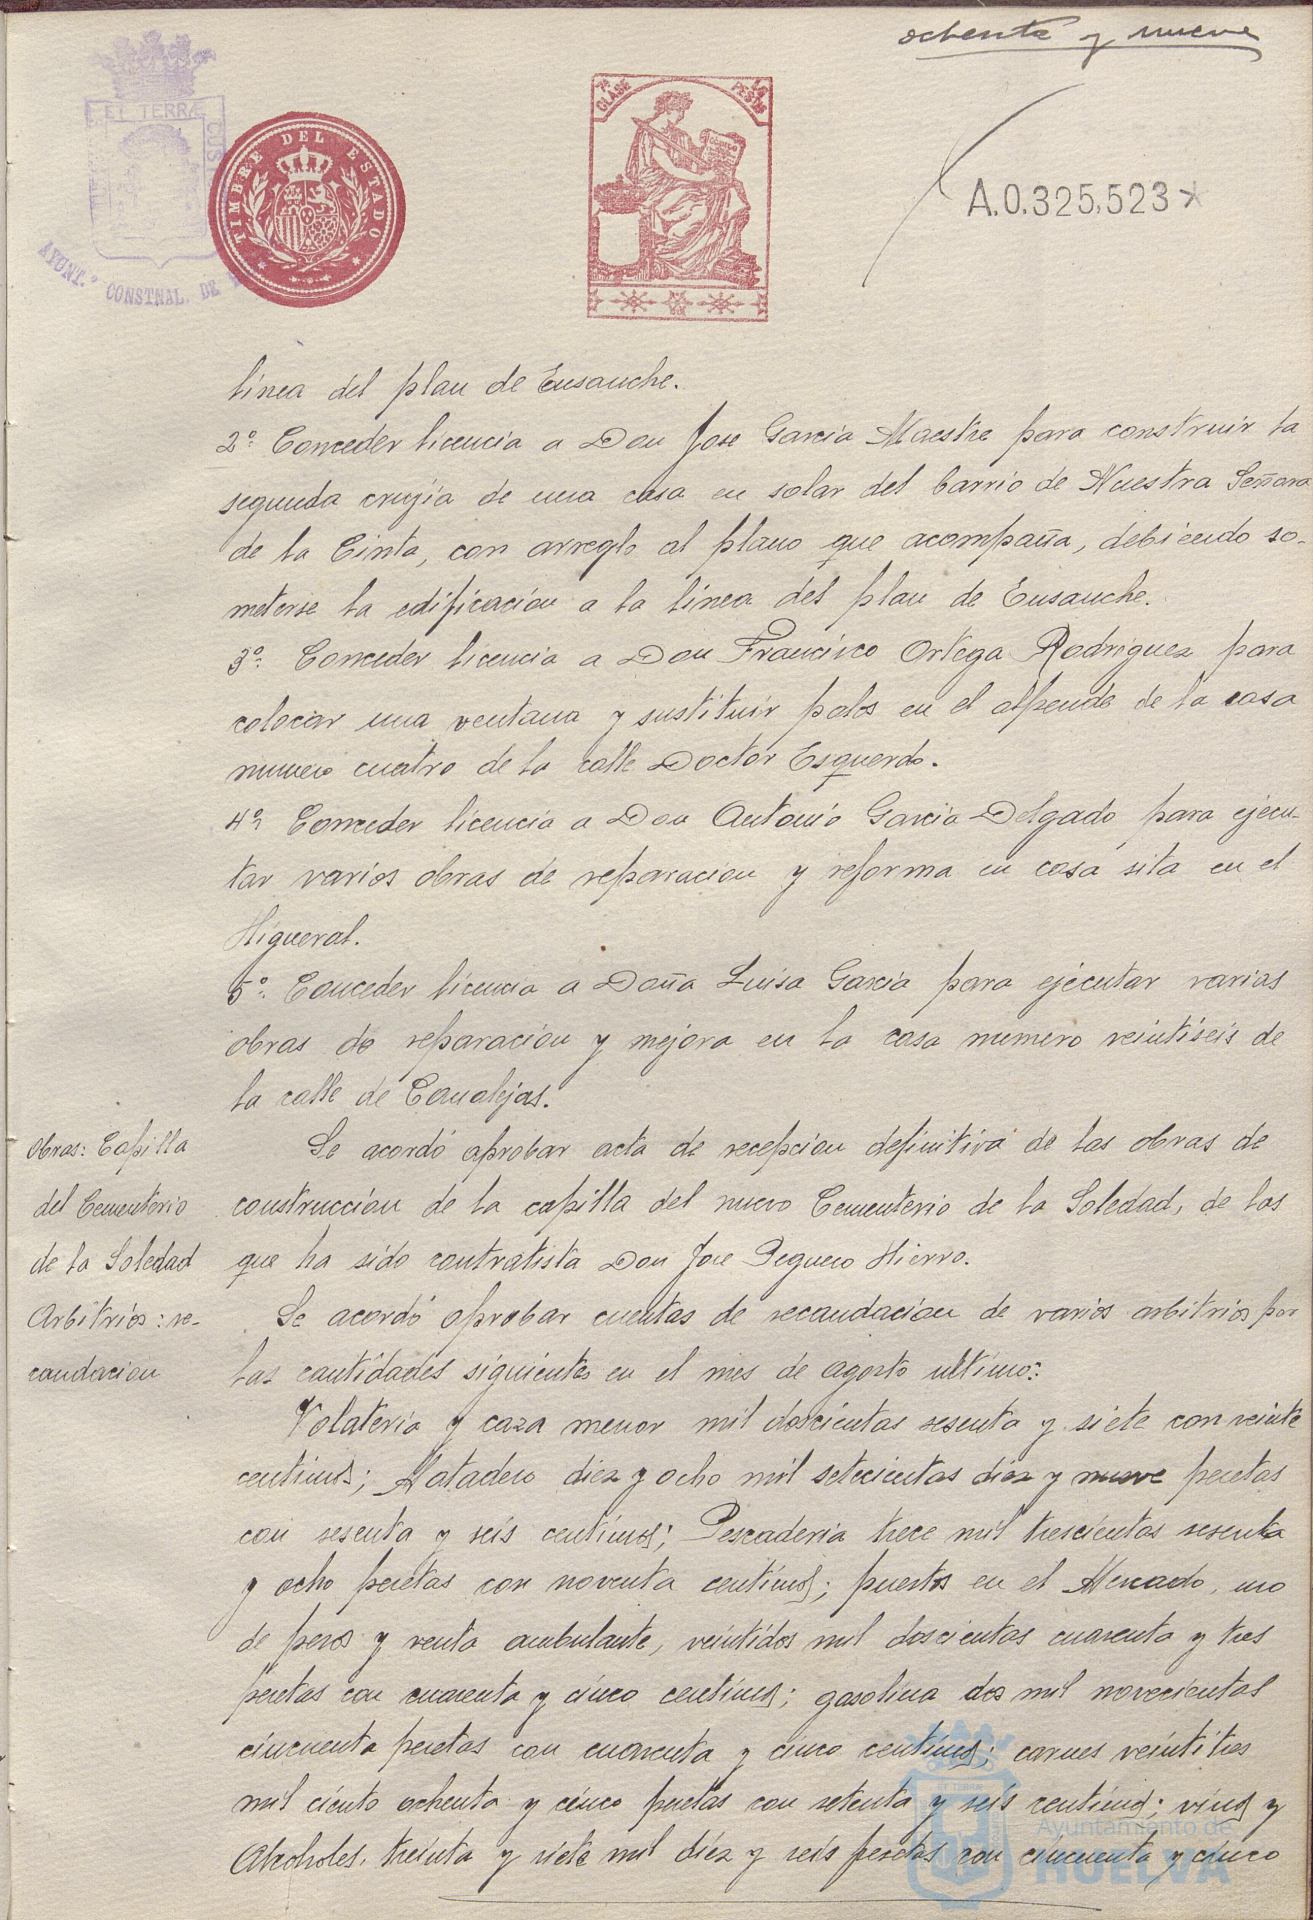 ochenta y nueve
ET TERRÆ CUS
TIMBRE DEL ESTADO
AYUNT.º CONSTNAL. DE
7ª CLASE
PESTS
A.0.325,523*
línea del plan de Ensanche.
2º: Conceder licencia a Don Jose Garcia Maestre para construir la
segunda crujía de una casa en solar del barrio de Nuestra Señora
de la Cinta, con arreglo al plano que acompaña, debiendo so-
meterse la edificacion a la línea del plan de Ensanche.
3º: Conceder licencia a Don Francisco Ortega Rodriguez para
colocar una ventana y sustituir palos en el alpende de la casa
numero cuatro de la calle Doctor Esquerdo.
4º: Conceder licencia a Don Antonio Garcia Delgado para ejecu-
tar varios obras de reparacion y reforma en casa sita en el
Higueral.
5º: Conceder licencia a Doña Luisa Garcia para ejecutar varias
obras de reparacion y mejora en la casa numero veintiseis de
la calle de Canalejas.
Obras: Capilla
del Cementerio
de la Soledad
Se acordó aprobar acta de recepcion definitiva de las obras de
construccion de la capilla del nuevo Cementerio de la Soledad, de las
que ha sido contratista Don Jose Peguero Hierro.
Arbitrios: re-
caudacion
Se acordó aprobar cuentas de recaudacion de varios arbitrios por
las cantidades siguientes en el mes de agosto ultimo:
Volateria y caza menor mil doscientas sesenta y siete con veinte
centimos; Matadero diez y ocho mil setecientas diez y nueve pesetas
con sesenta y seis centimos; Pescaderia trece mil trescientas sesenta
y ocho pesetas con noventa centimos; puestos en el Mercado, uso
de pesos y venta ambulante, veintidos mil doscientas cuarenta y tres
pesetas con cuarenta y cinco centimos; gasolina dos mil novecientas
cincuenta pesetas con cuarenta y cinco centimos; carnes veintitres
mil ciento ochenta y cinco pesetas con setenta y seis centimos; vinos y
Alcoholes, treinta y siete mil diez y seis pesetas con cincuenta y cinco
Ayuntamiento de
HUELVA